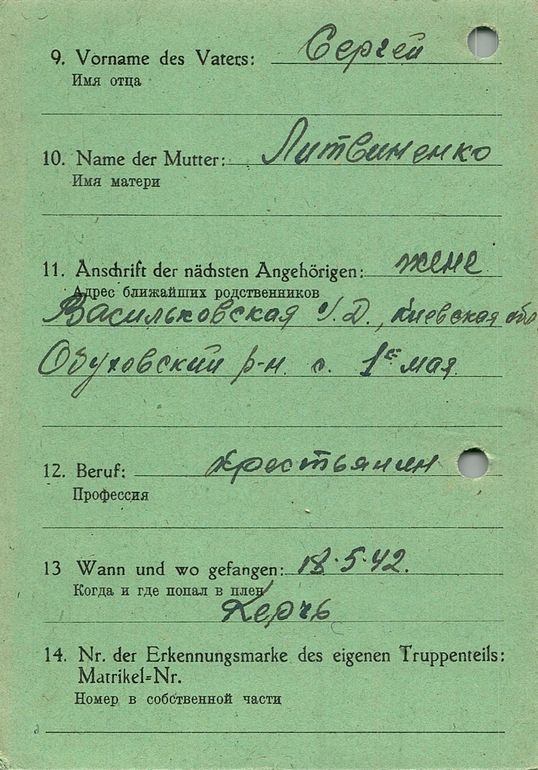 9. Vorname des Vaters: Сергей
Имя отца
10. Name der Mutter: Литвиненко
Имя матери
11. Anschrift der nächsten Angehörigen: жене
Адрес ближайших родственников
Васильковская У.Д., Киевская обл
Обуховский р-н. с. 1е мая.
12. Beruf: крестьянин
Профессия
13 Wann und wo gefangen: 18.5.42.
Когда и где попал в плен
Керчь
14. Nr. der Erkennungsmarke des eigenen Truppenteils:
Matrikel=Nr.
Номер в собственной части